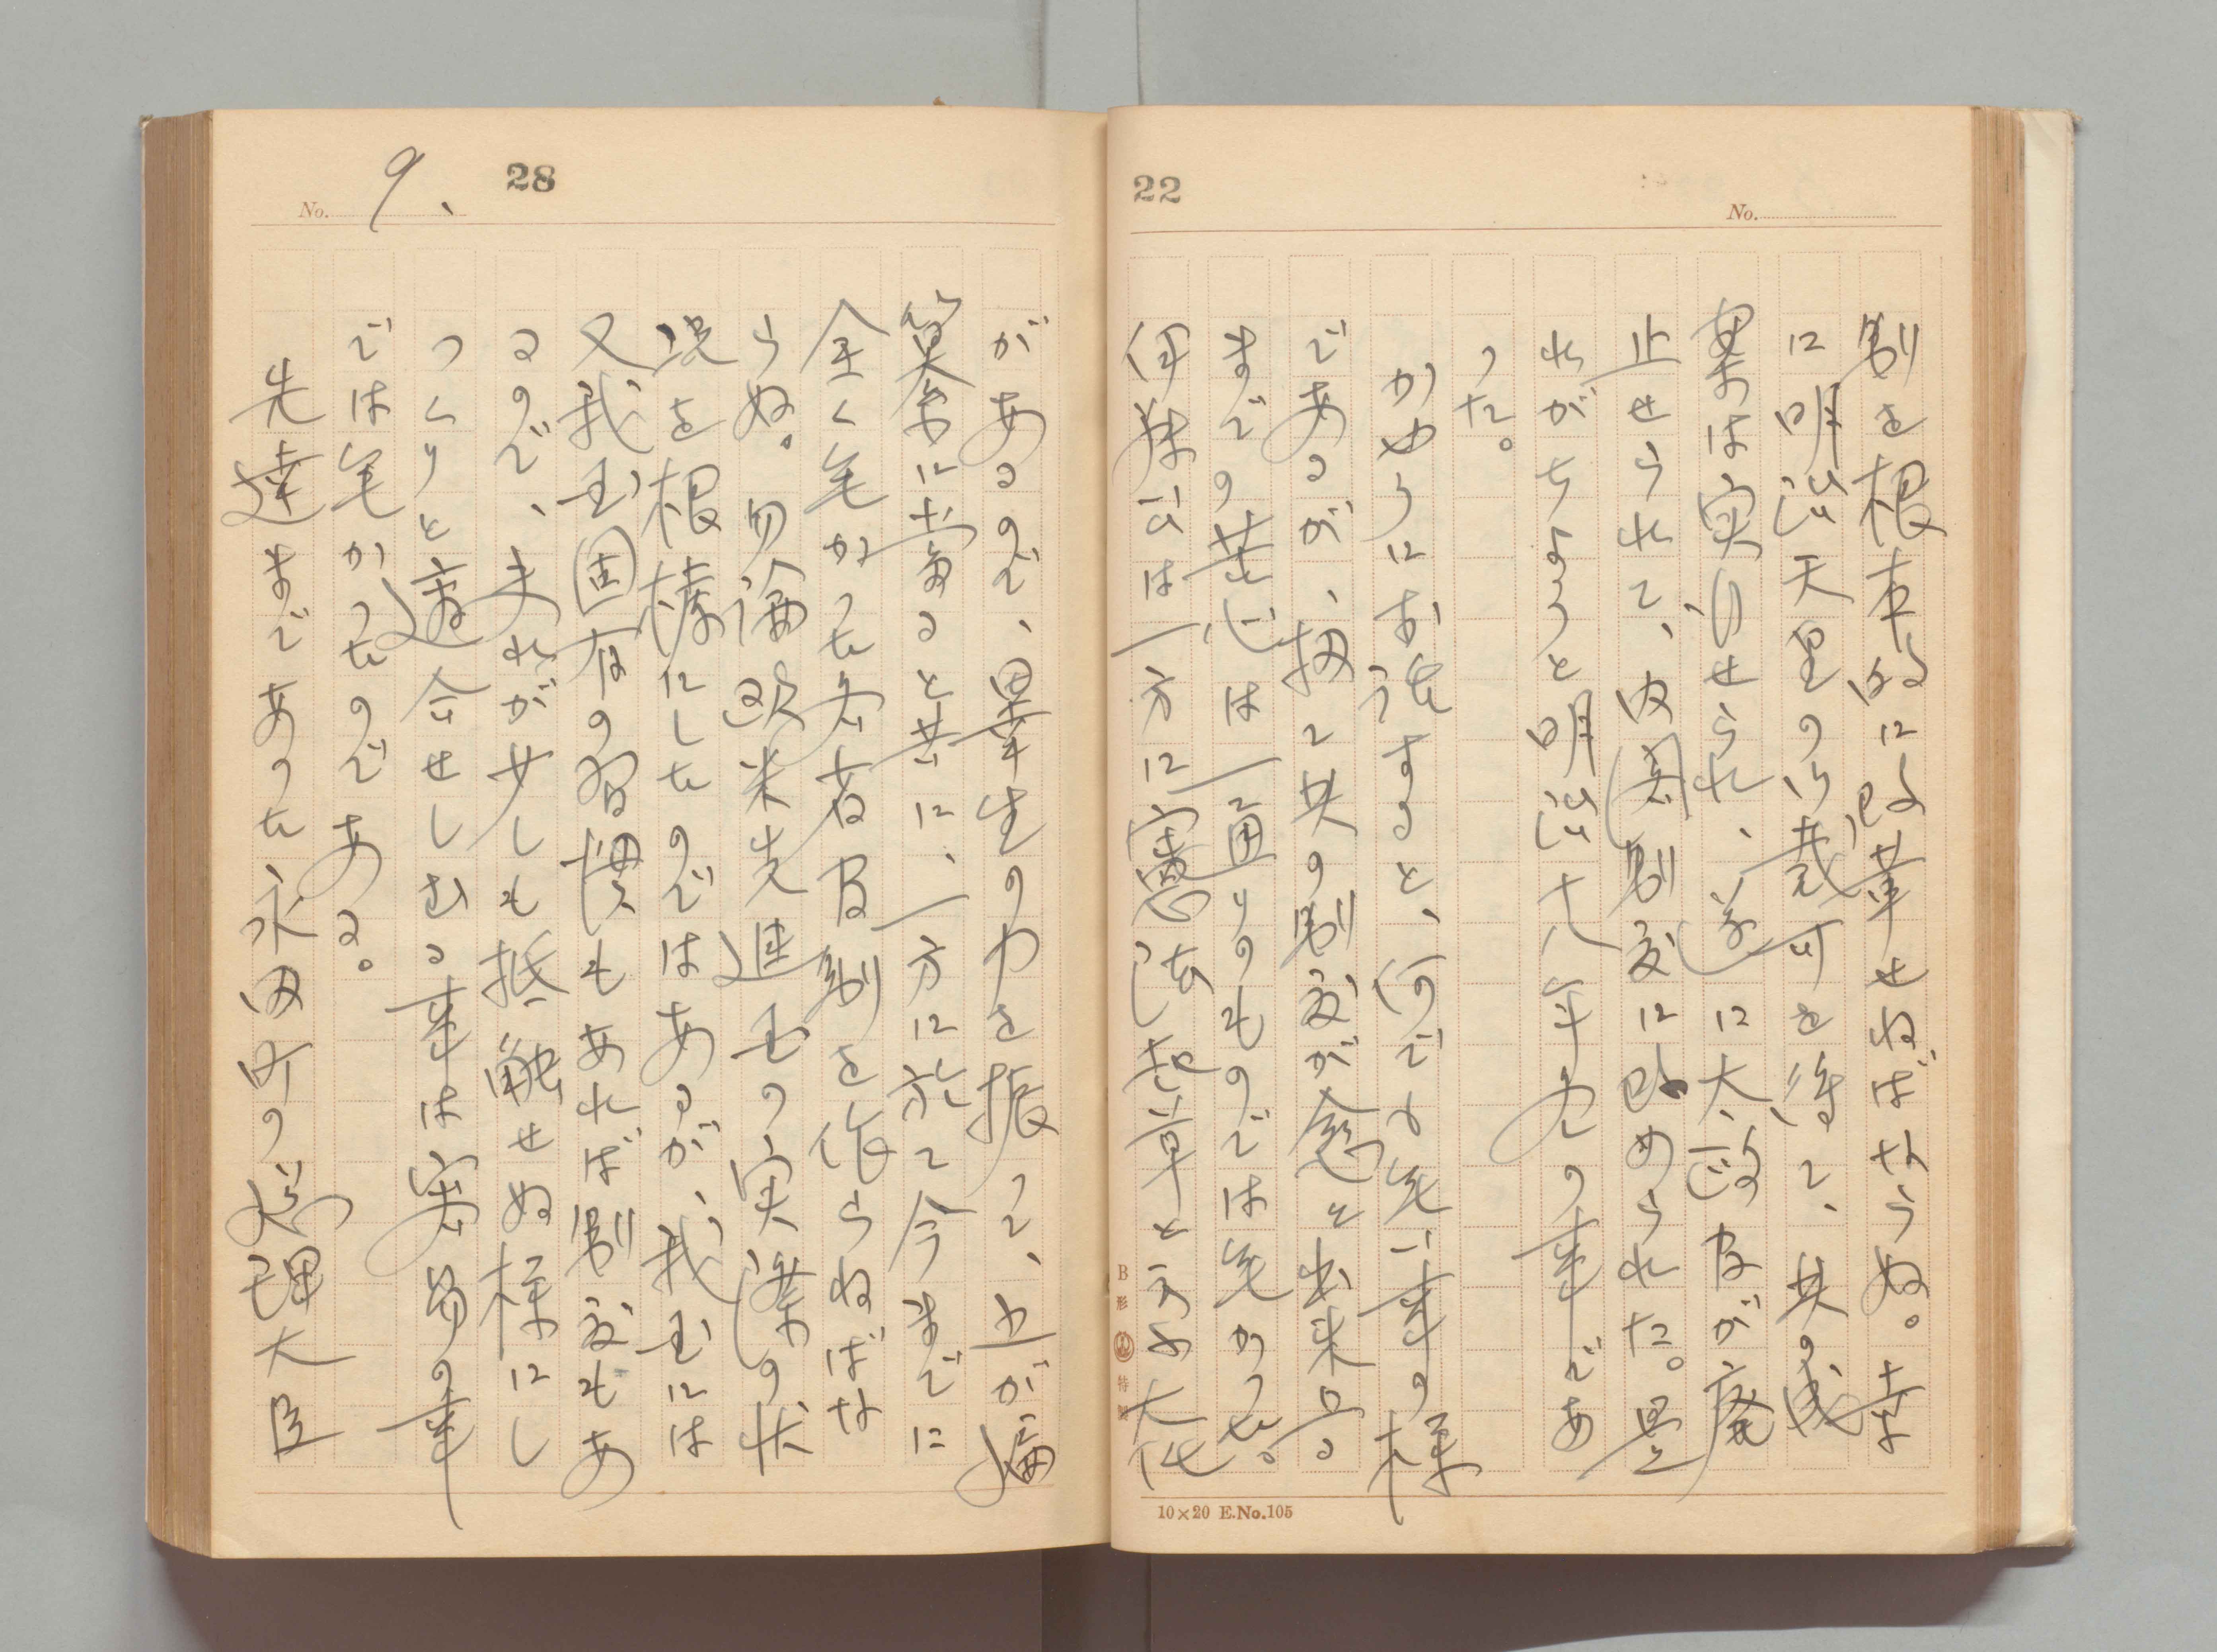 22
No.
制を根本的に改革せねばならぬ。幸
に明治天皇の御裁可を得て、其の成
案は実行せられ、遂に大政官が廃
止せられて、内閣制度に改められた。是
れがちようと明治十八年九の事であ
つた。
かやうにお話すると、何でも無い事の様
であるが、扨て其の制度が愈々出来る
までの苦心は一通りのものでは無かつた。
伊藤公は一方に憲法起草と云ふ大任
10×20 E.No.105
B形 特製
28
No. 9、
があるので、畢生の力を振つて、之が編
纂に当ると共に、一方に於て今までに
全く無かつた各省官制を作らねばな
らぬ。勿論欧米先進国の実際の状
況を根拠にしたのではあるが、我国には
又我国固有の習慣もあれば制度もあ
るので、夫れが少しも抵触せぬ様にし
つくりと適合せしむる事は実に容易の事
では無かつたのである。
先達まであつた永田町の総理大臣